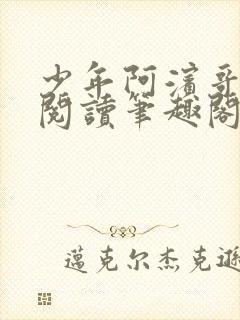 少年阿濱哥
閱讀筆趣閣
邁克尔杰克遜